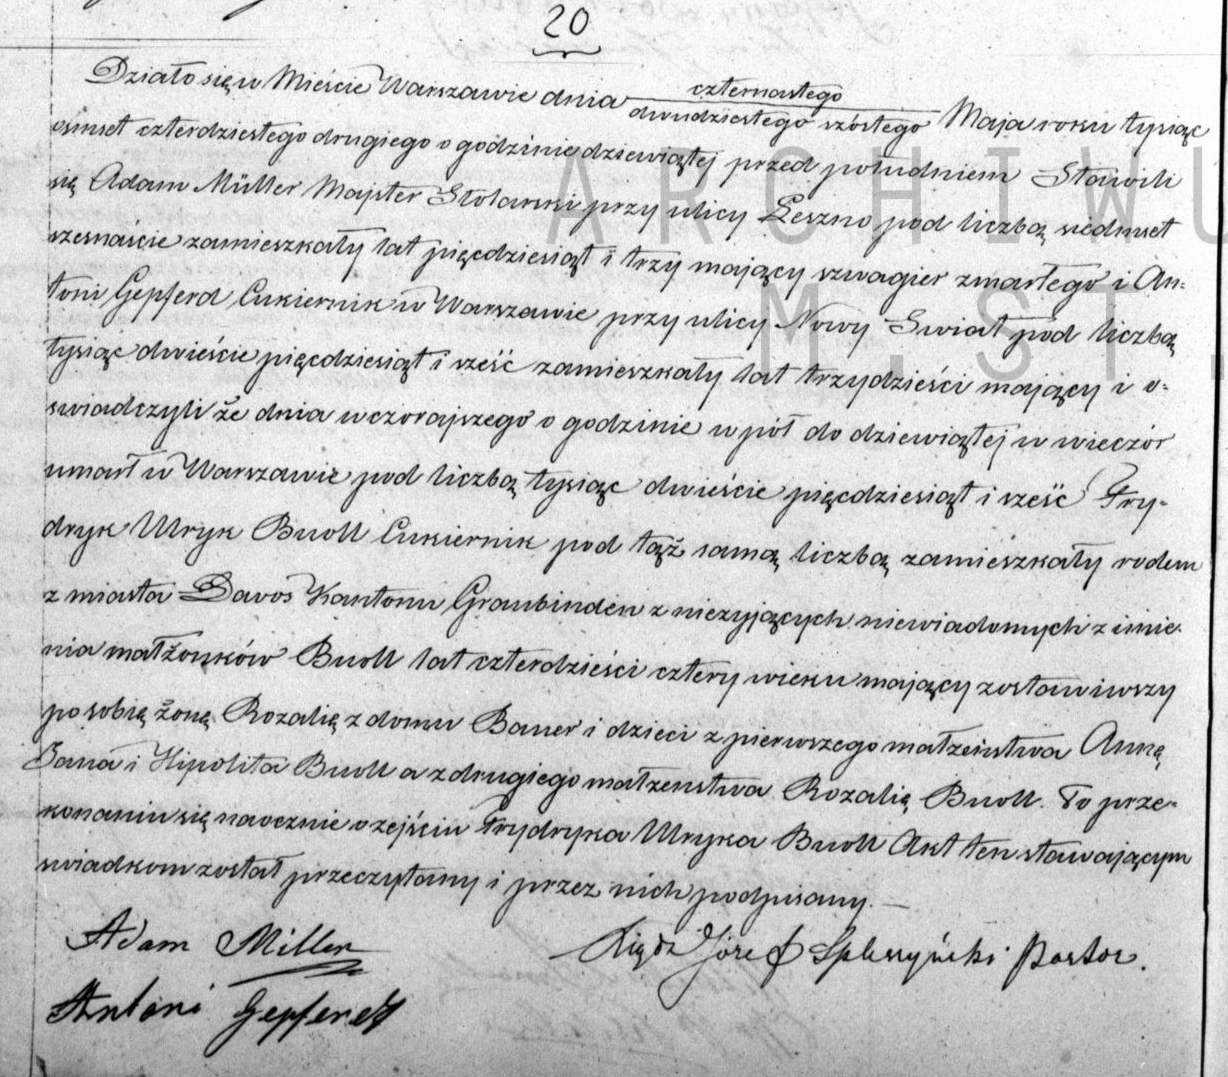 20
Działo się w Mieście Warszawie dnia czternastego / dwudziestego szóstego Maja roku tysiąc
osmset czterdziestego drugiego o godzinie dziewiątej przed południem Stawili
się Adam Müller Majster Stolarski przy ulicy Leszno pod liczbą siedmset
szesnaście zamieszkały lat pięcdziesiąt i trzy mający szwagier zmarłego i An-
toni Gepferd Cukiernik w Warszawie przy ulicy Nowy Swiat pod liczbą
tysiąc dwieście pięcdziesiąt i sześć zamieszkały lat trzydzieści mający i o-
swiadczyli że dnia wczorajszego o godzinie w pół do dziewiątej w wieczór
umarł w Warszawie pod liczbą tysiąc dwieście pięcdziesiąt i sześć Fry-
dryk Ulryk Buoll Cukiernik pod tąż samą liczbą zamieszkały rodem
z miasta Davos Kantonu Graubinden z nieżyjących niewiadomych z imie
nia małżonków Buoll lat czterdzieści cztery wieku mający zostawiwszy
po sobię żonę Rozalię z domu Bauer i dzieci z pierwszego małżeństwa Annę,
Jana i Hipolita Buoll a z drugiego małżenstwa Rozalię Buoll. Po prze-
konaniu się naocznie o zejściu Frydryka Ulryka Buoll Akt ten stawającym
swiadkom został przeczytany i przez nich podpisany. —
Adam Miller
Xiądz Józef Spleszyński Pastor.
Antoni Gepferdt
ARCHIWU
M. ST.